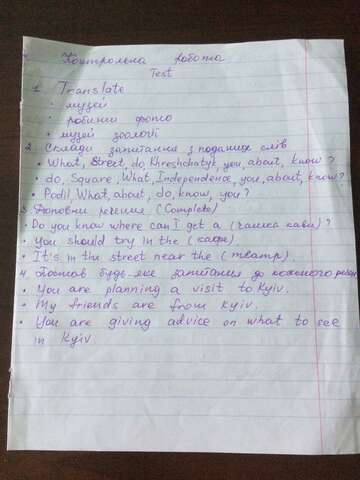 Контрольна робота
Test
1. Translate
• музей
• робити фото
• музей зоології
2. Склади запитання з поданих слів
• What, Street, do, Khreshchatyk, you, about, know?
• do, Square, What, Independence, you, about, know?
• Podil, What, about, do, know, you?
3. Доповни речення (Complete)
• Do you know where can I get a (чашка кави)?
• You should try in the (кафе).
• It's in the street near the (театр).
4. Постав будь-яке запитання до кожного речен
• You are planning a visit to Kyiv.
• My friends are from Kyiv.
• You are giving advice on what to see
in Kyiv